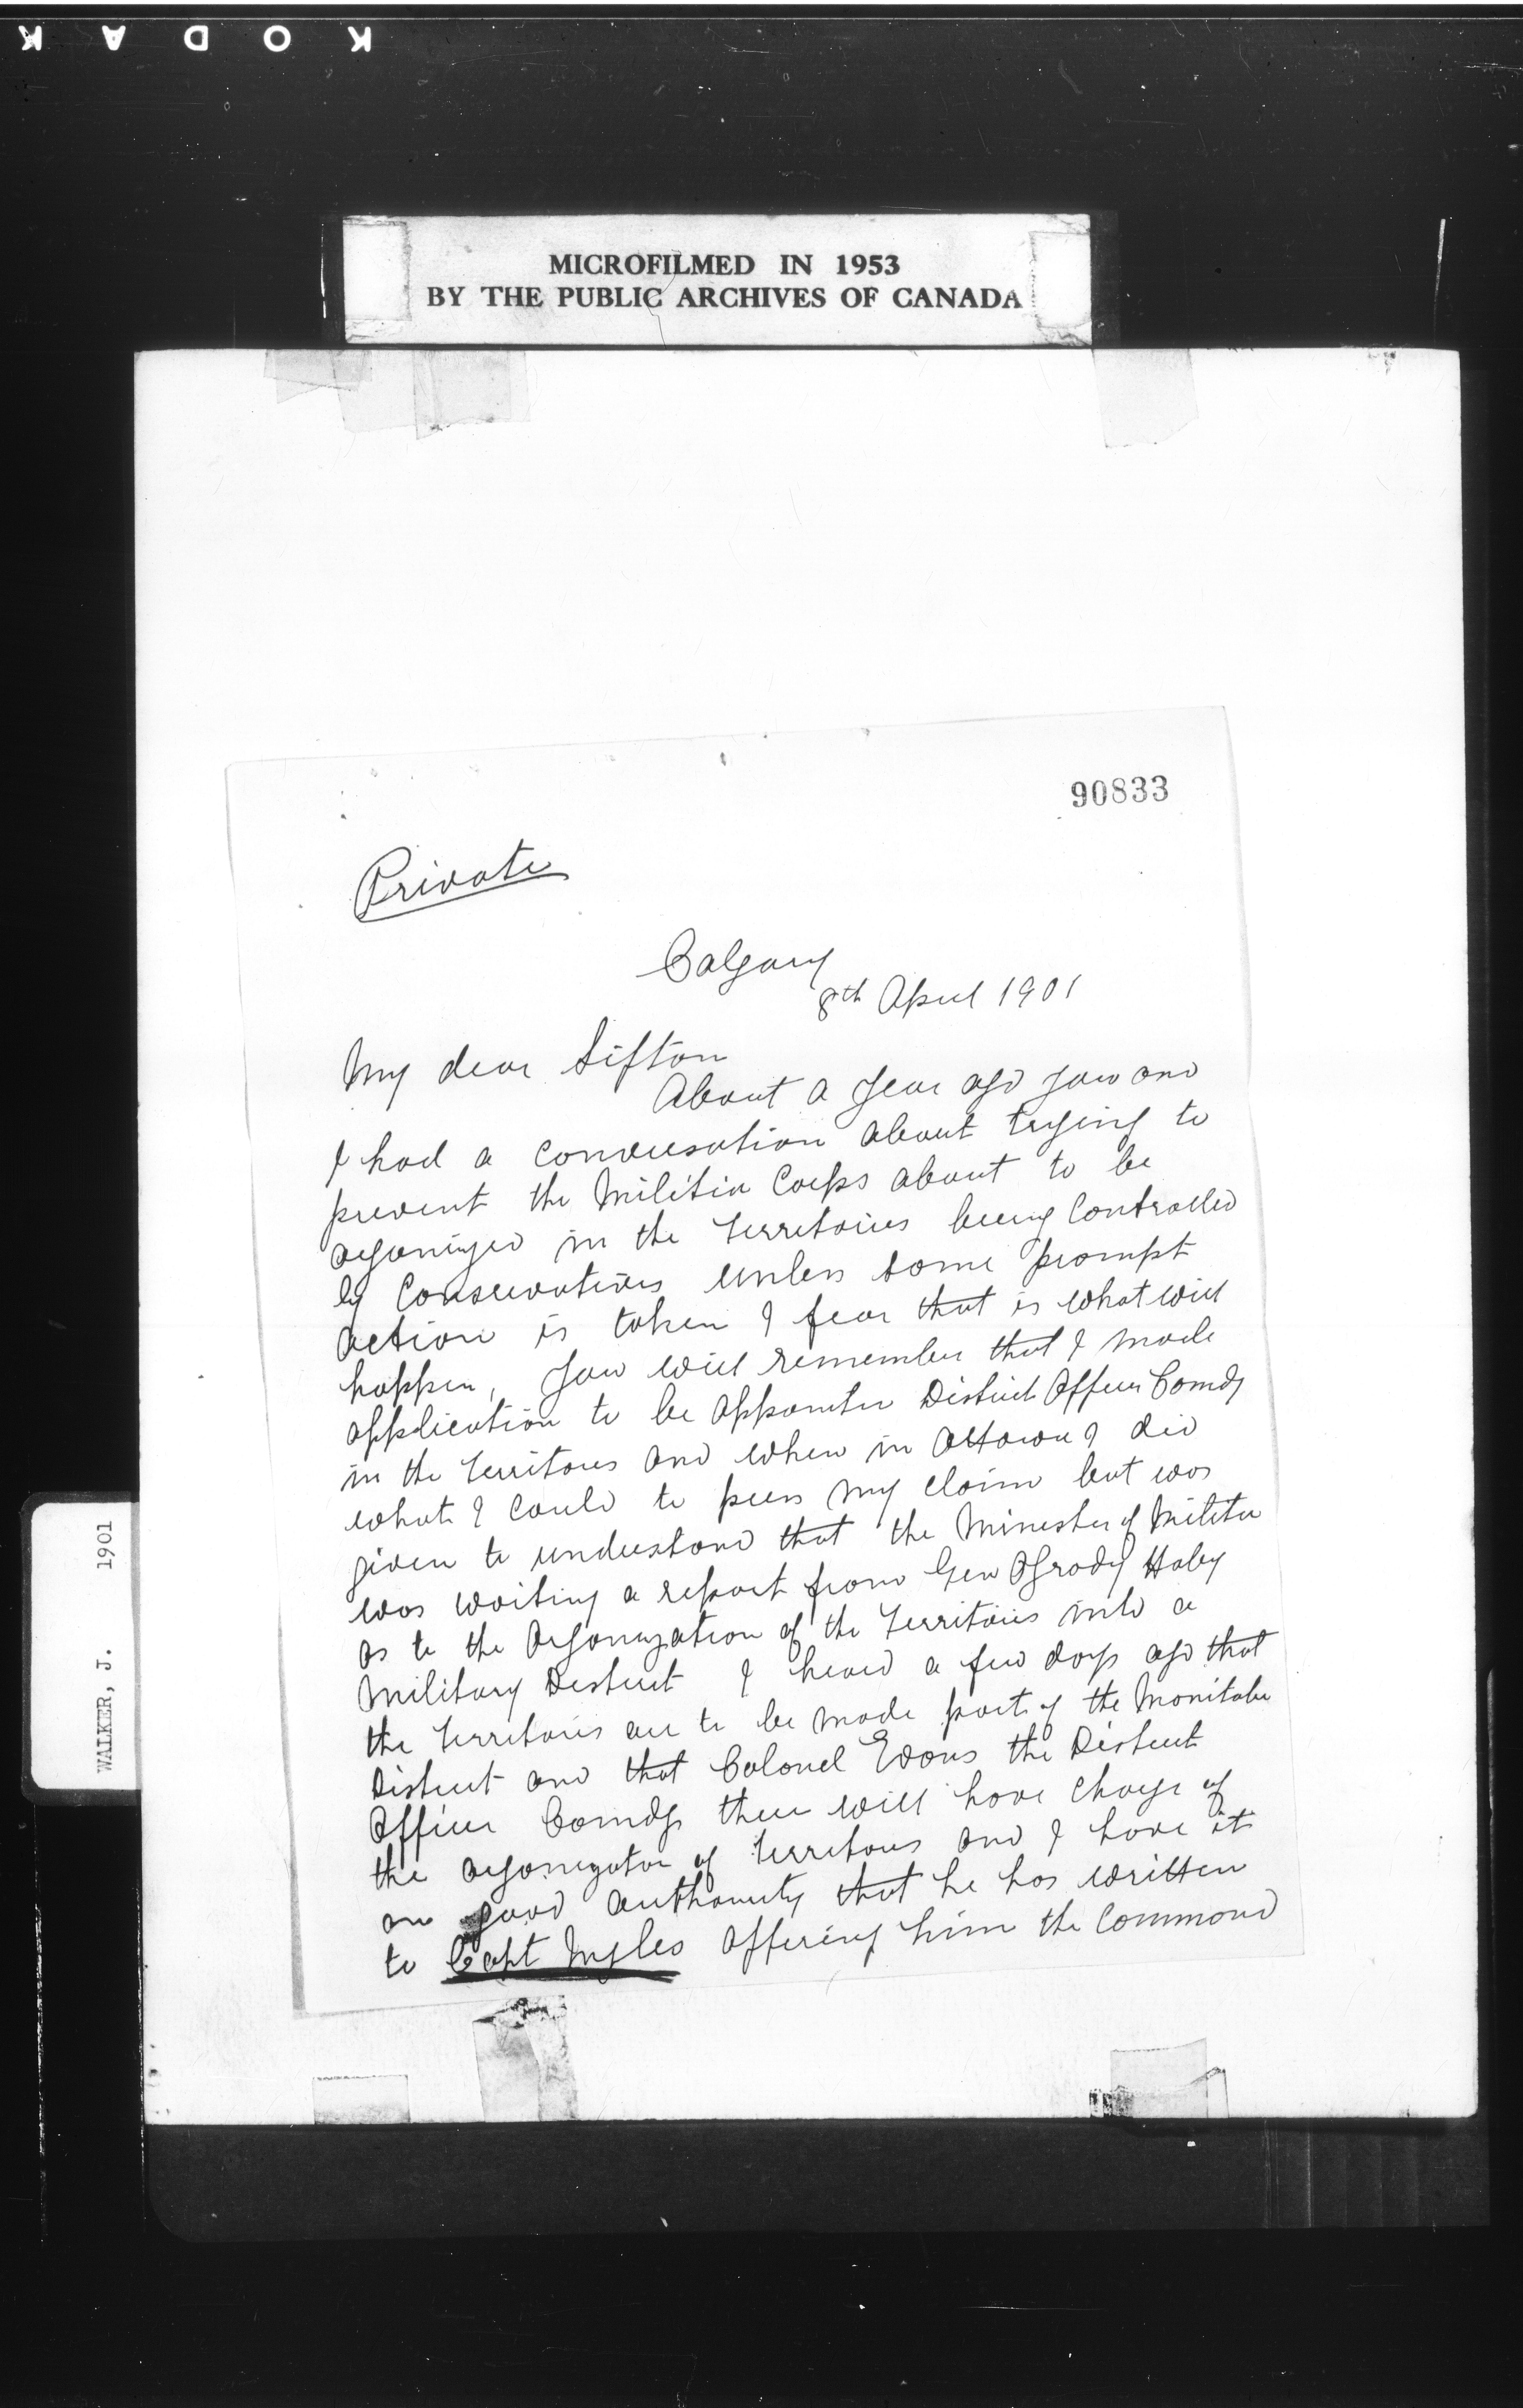 KODAK
MICROFILMED IN 1953
BY THE PUBLIC ARCHIVES OF CANADA
90833
Private
Calgary
8th April 1901
My dear Sifton
About a year ago you and
I had a conversation about trying to
prevent the Militia Corps about to be
organized in the Territories being controlled
by Conservatives unless some prompt
action is taken I fear that is what will
happen, You will remember that I made
application to be appointed District Officer Comdg
in the Territories and when in Ottawa I did
what I could to press my claim but was
given to understand that the Minister of Militia
was waiting a report from Gen O'Grady Haly
as to the organization of the Territories into a
Military District I heard a few days ago that
the Territories are to be made part of the Manitoba
District and that Colonel Evans the District
Officer Comdg there will have charge of
the organization of Territories and I have it
on good authority that he has written
to Capt Inglis offering him the command
WALKER, J. 1901